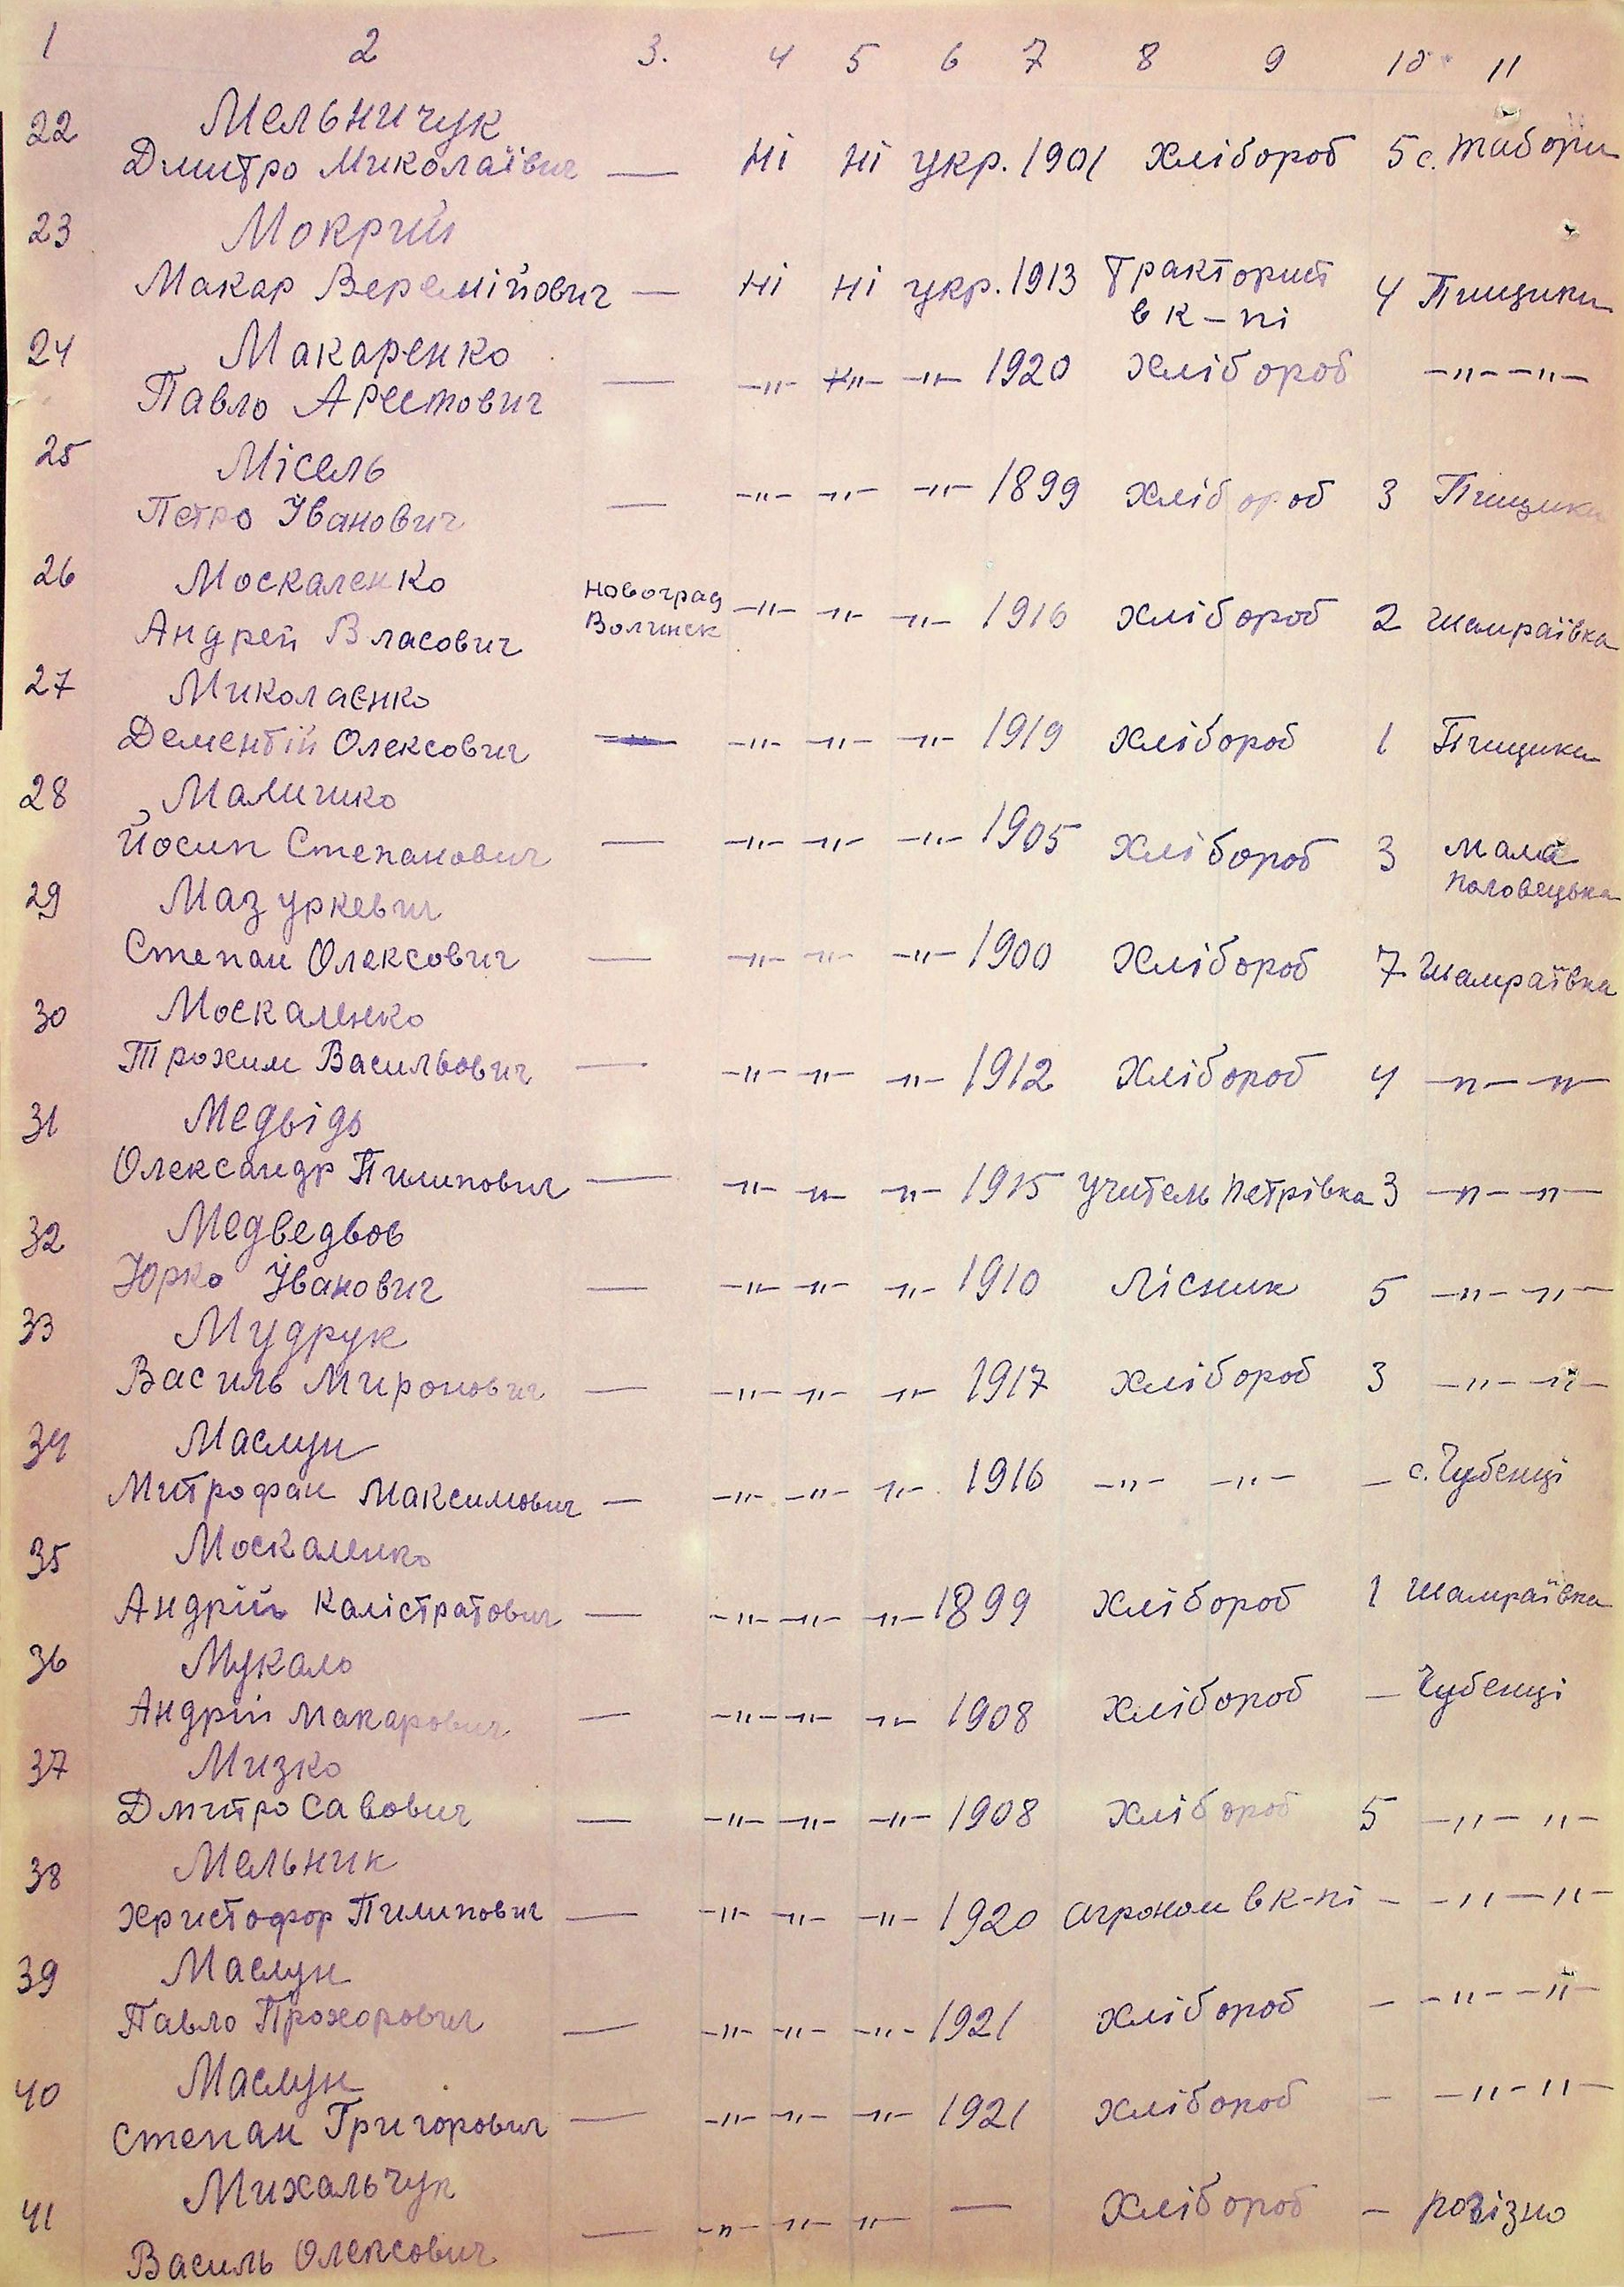 1 2 3. 4 5 6 7 8 9 10 11
22 Мельничук
Дмитро Миколаївич — Ні Ні укр. 1901 Хлібороб 5 с. Табори
23 Мокрий
Макар Веремійович — Ні Ні укр. 1913 Тракторист в к-пі 4 Пищики
24 Макаренко
Павло Арестович — -"- -"- -"- 1920 Хлібороб -"- -"-
25 Місель
Петро Іванович — -"- -"- -"- 1899 Хлібороб 3 Пищики
26 Москаленко
Андрей Власович Новоград Волинск -"- -"- -"- 1916 Хлібороб 2 Шамраївка
27 Миколаєнко
Дементій Олексович — -"- -"- -"- 1919 Хлібороб 1 Пищики
28 Малишко
Йосип Степанович — -"- -"- -"- 1905 Хлібороб 3 Мала Половецька
29 Мазуркевич
Степан Олексович — -"- -"- -"- 1900 Хлібороб 7 Шамраївка
30 Москаленко
Трохим Васильович — -"- -"- -"- 1912 Хлібороб 4 -"- -"-
31 Медвідь
Олександр Пилипович — -"- -"- -"- 1915 учитель Петрівка 3 -"- -"-
32 Медведьов
Юрко Іванович — -"- -"- -"- 1910 Лісник 5 -"- -"-
33 Мудрук
Василь Миронович — -"- -"- -"- 1917 Хлібороб 3 -"- -"-
34 Маслун
Митрофан Максимович — -"- -"- -"- 1916 -"- -"- — с. Чубенці
35 Москаленко
Андрій Калістратович — -"- -"- -"- 1899 Хлібороб 1 Шамраївка
36 Мукало
Андрій Макарович — -"- -"- -"- 1908 Хлібороб — Чубенці
37 Мизко
Дмитро Савович — -"- -"- -"- 1908 Хлібороб 5 -"- -"-
38 Мельник
Христофор Пилипович — -"- -"- -"- 1920 агроном в к-пі - -"- -"-
39 Маслун
Павло Прохорович — -"- -"- -"- 1921 Хлібороб - -"- -"-
40 Маслун
Степан Григорович — -"- -"- -"- 1921 Хлібороб - -"- -"-
41 Михальчук
Василь Олексович — -"- -"- -"- — Хлібороб - розізно